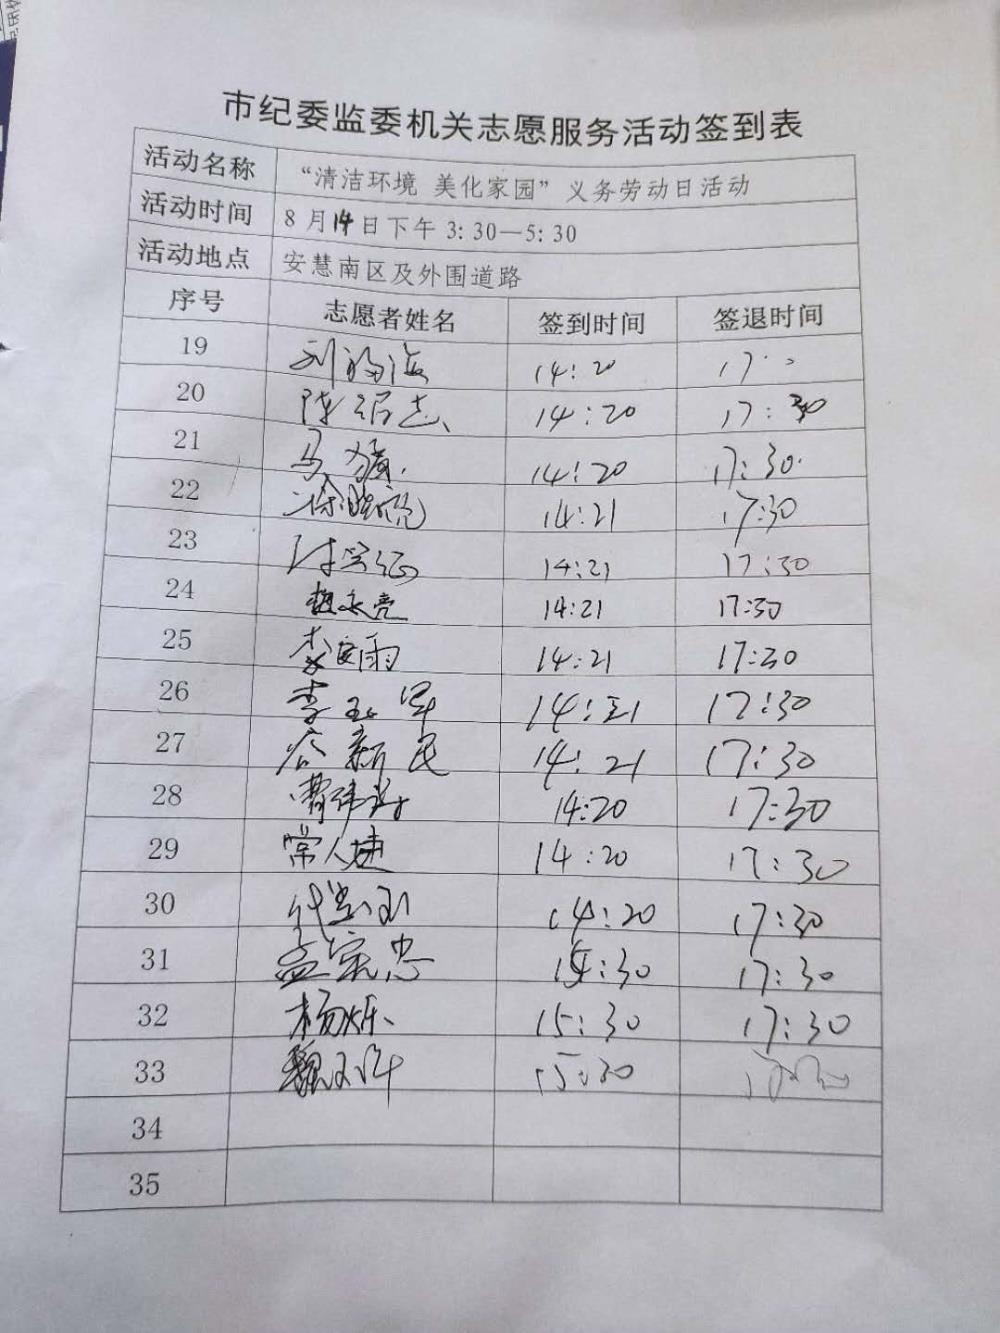 市纪委监委机关志愿服务活动签到表
活动名称 “清洁环境 美化家园”义务劳动日活动
活动时间 8月14日下午3:30—5:30
活动地点 安慧南区及外围道路
序号 志愿者姓名 签到时间 签退时间
19 14:20
20 14:20 17:30
21 马 14:20 17:30
22 14:21 17:30
23 14:21 17:30
24 赵永亮 14:21 17:30
25 李安雨 14:21 17:30
26 李玉军 14:21 17:30
27 谷新民 14:21 17:30
28 曹伟 14:20 17:30
29 常人婕 14:20 17:30
30 14:20 17:30
31 孟宪忠 15:30 17:30
32 杨烁 15:30 17:30
33 魏 15:30
34
35